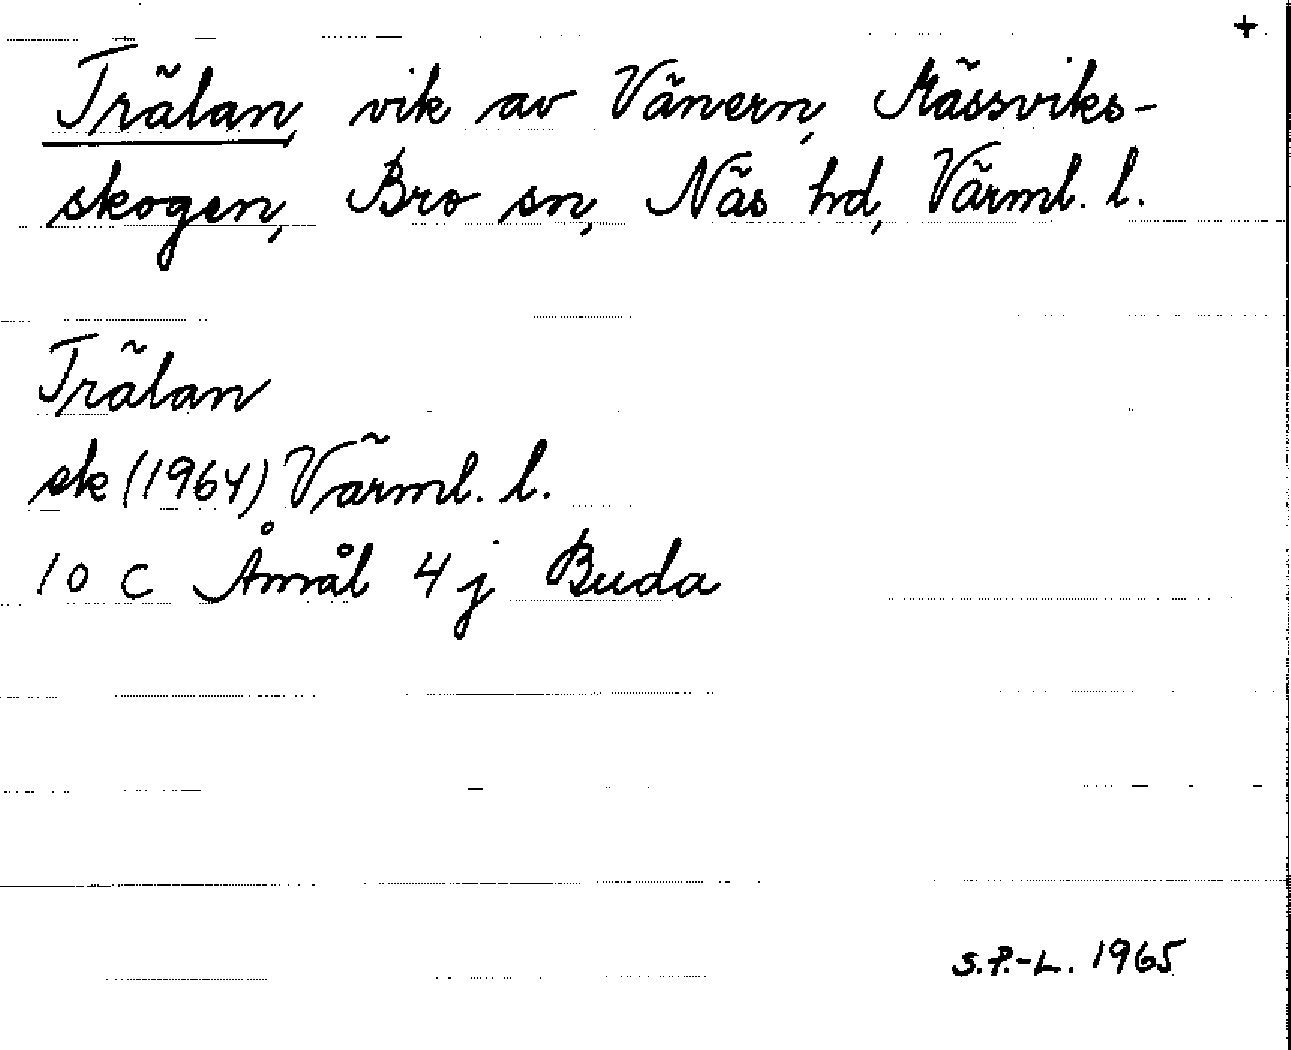 +
Trälan, vik av Vänern, Mässviks-
skogen, Bro sn, Näs hd, Värml. l.
Trälan
sk (1964) Värml. l.
10 C Åmål 4 j Buda
S.P.-L. 1965